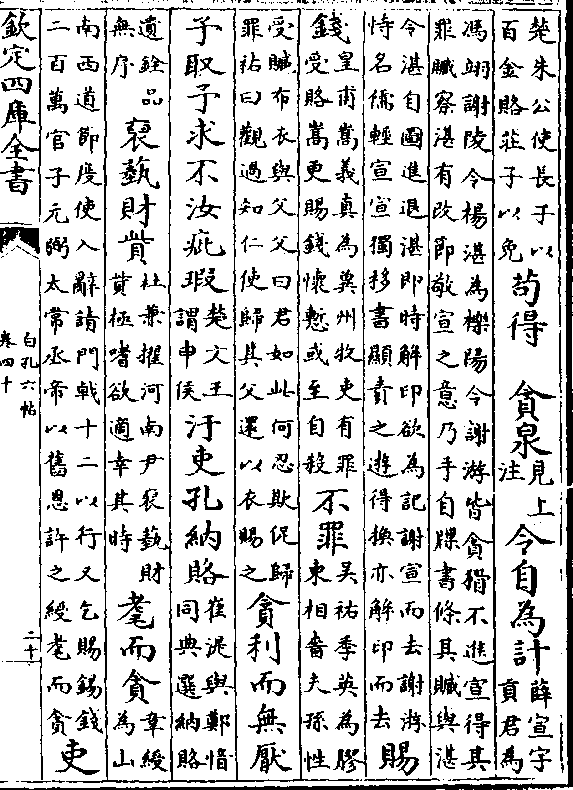 楚朱公使長子以
百金賂莊子以免
苟得 貪泉
見上
注
令自為計
薛宣字
貢君為
馮翊謝陵令楊湛為櫟陽令謝游皆貪猾不進宣得其
罪贓察湛有改節敬宣之意乃手自牒書條其贓與湛
令湛自圖進退湛即時解印欲為記謝宣而去謝游
恃名儒輕宣宣獨移書顯責之遊得換亦解印而去
賜
錢
皇甫嵩義真為冀州牧吏有罪
受賂嵩更賜錢懷慙或至自殺
不罪
吳祐季英為膠
東相嗇夫孫性
受贓布衣與父父曰君如此何忍欺促歸
罪祐曰觀過知仁使歸其父還以衣賜之
貪利而無厭
予取予求不汝疵瑕
楚文王
謂申侯
汙吏孔納賂
崔湜與鄭愔
同典選納賂
遺銓品
無序
褻藝財貲
杜兼擢河南尹褻藝財
貲極嗜欲適幸其時
耄而貪
韋綬
為山
南西道節度使入辭請門戟十二以行又乞賜錫錢
二百萬官子元弼太常丞帝以舊恩許之綬耄而貪
吏
欽定四庫全書
白孔六帖
卷四十
二十